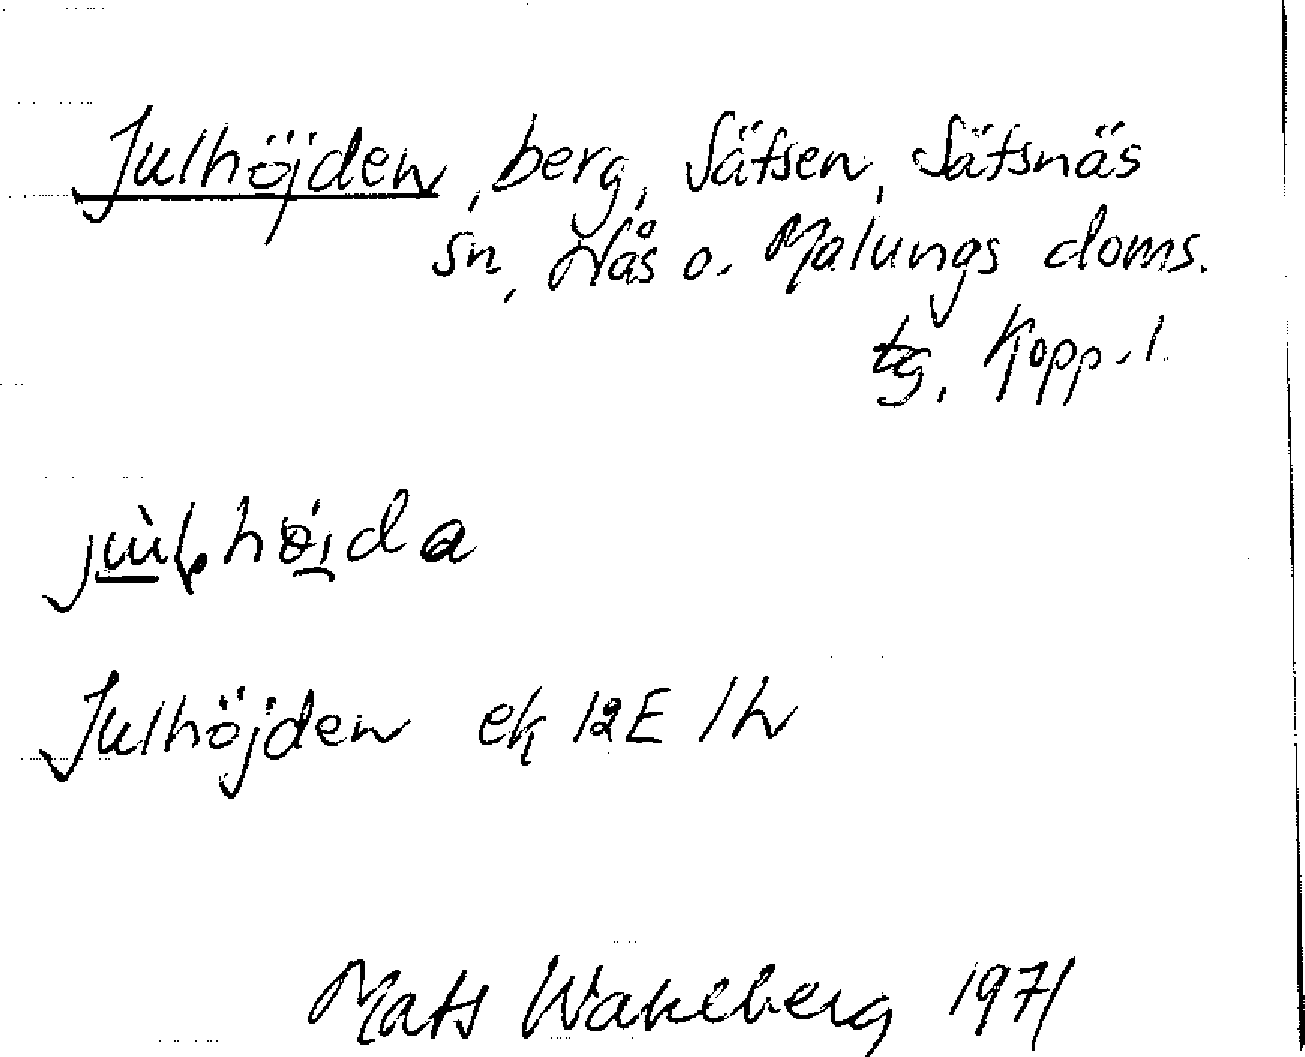 Julhöjden, berg, Sätsen, Sätsnäs
sn, Nås o. Malungs doms.
tg, Kopp. l
Julhöjden ek 12E 1h
Mats Wahlberg 1971